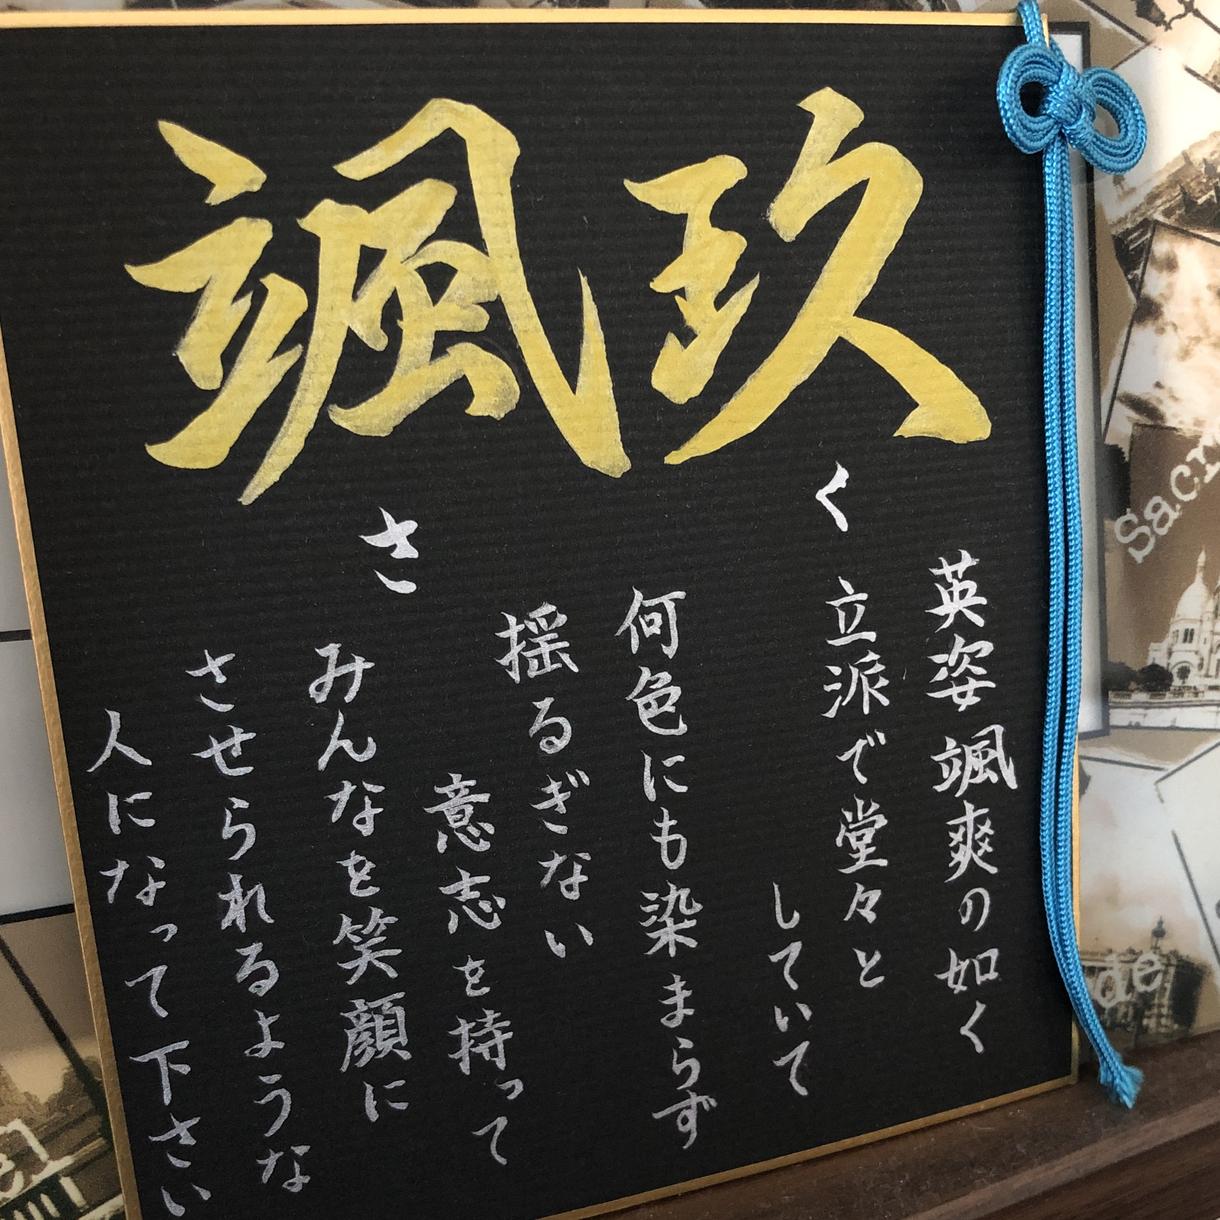 颯玖
さく
英姿颯爽の如く
立派で堂々と
していて
何色にも染まらず
揺るぎない
意志を持って
みんなを笑顔に
させられるような
人になって下さい
Sacr
de
el